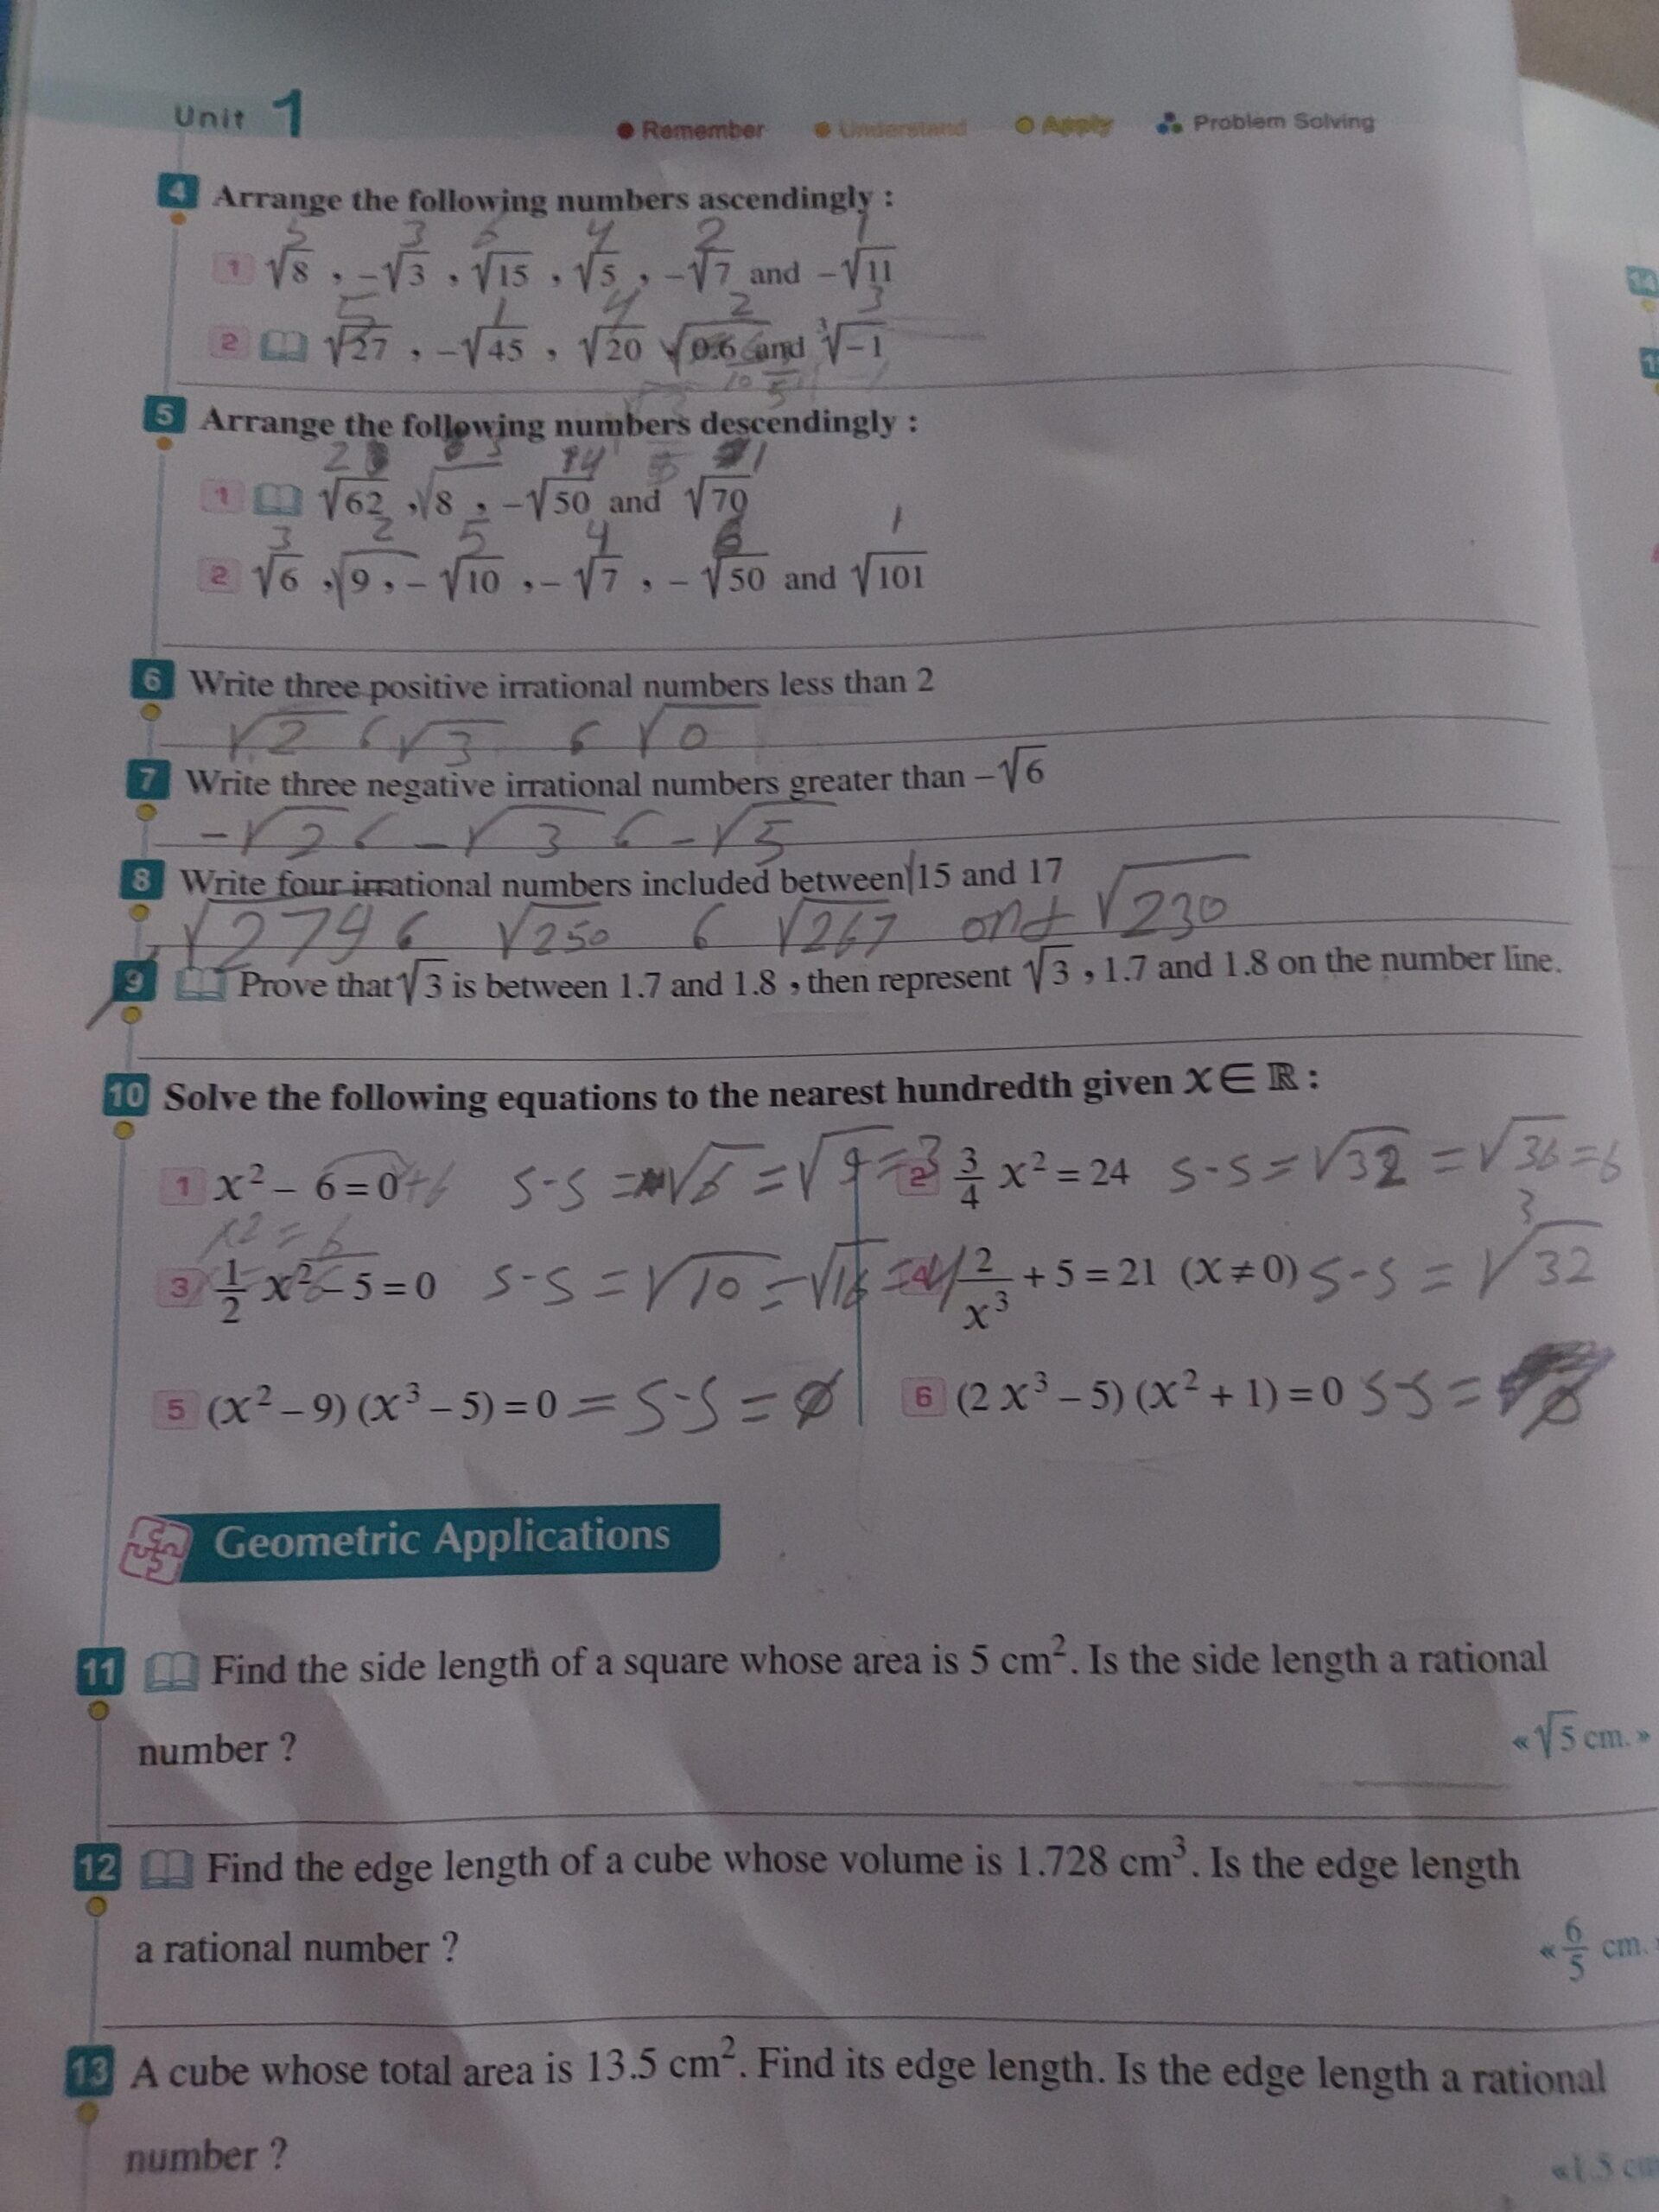 Unit 1
Remember Understand Apply Problem Solving
4 Arrange the following numbers ascendingly :
5 3 6 4 2 1
1 √8 , −√3 , √15 , √5 , −√7 and −√11
5 1 4 2 3
2 √27 , −√45 , √20 √0.6 and ∛−1
5 Arrange the following numbers descendingly :
2 3 4 1
1 √62 , √8 , −√50 and √70
3 2 5 4 6 1
2 √6 , √9 , −√10 , −√7 , −√50 and √101
6 Write three positive irrational numbers less than 2
√2 , √3 , √0
7 Write three negative irrational numbers greater than −√6
−√2 , −√3 , −√5
8 Write four irrational numbers included between 15 and 17
√274 , √250 , √267 and √230
9 Prove that √3 is between 1.7 and 1.8 , then represent √3 , 1.7 and 1.8 on the number line.
10 Solve the following equations to the nearest hundredth given x ∈ ℝ :
1 x² − 6 = 0 +6 S-S = √6 = √9 = 3 2 3/4 x² = 24 S-S = √32 = √36 = 6
x² = 6
3 1/2 x² − 5 = 0 S-S = √10 = √16 = 4 4 2/x³ + 5 = 21 (x ≠ 0) S-S = ∛32
5 (x² − 9) (x³ − 5) = 0 = S-S = ∅ 6 (2 x³ − 5) (x² + 1) = 0 S-S = ∅
Geometric Applications
11 Find the side length of a square whose area is 5 cm². Is the side length a rational
number ?
«√5 cm.»
12 Find the edge length of a cube whose volume is 1.728 cm³. Is the edge length
a rational number ?
«6/5 cm.
13 A cube whose total area is 13.5 cm². Find its edge length. Is the edge length a rational
number ?
«1.5 cm